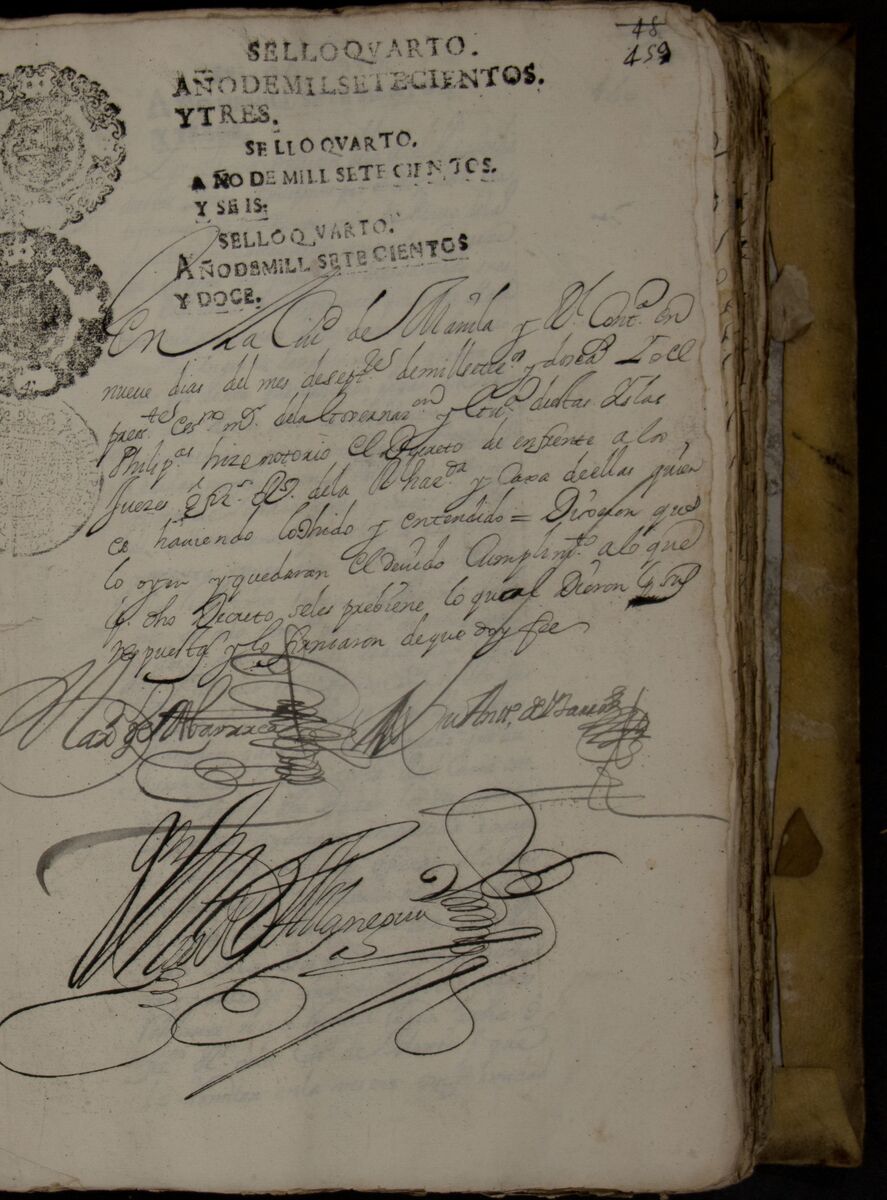 48
459
SELLO QVARTO.
AÑO DE MIL SETECIENTOS.
Y TRES.
SELLO QVARTO.
AÑO DE MILL SETECIENTOS.
Y SEIS.
SELLO QVARTO.
AÑO DE MILL SETECIENTOS
Y DOCE.
En la Ciud de Manila y Rl Contª en
nueve dias del mes de sepre de mill sette y dose a Yo el
press no mr. dela Governaz.on y destas Yslas
Philip.as hize notorio el Decreto de enfrente a los
Juezes dela Rl haz.da y Caxa de ellas quien
es haviendo lo ohido y entendido = Dixeron que
lo oyen y quedaran el devido Cumplim.to a lo que
p. dho Decreto seles prebiene, lo qual Dieron
respuesta y lo firmaron de que doy fee